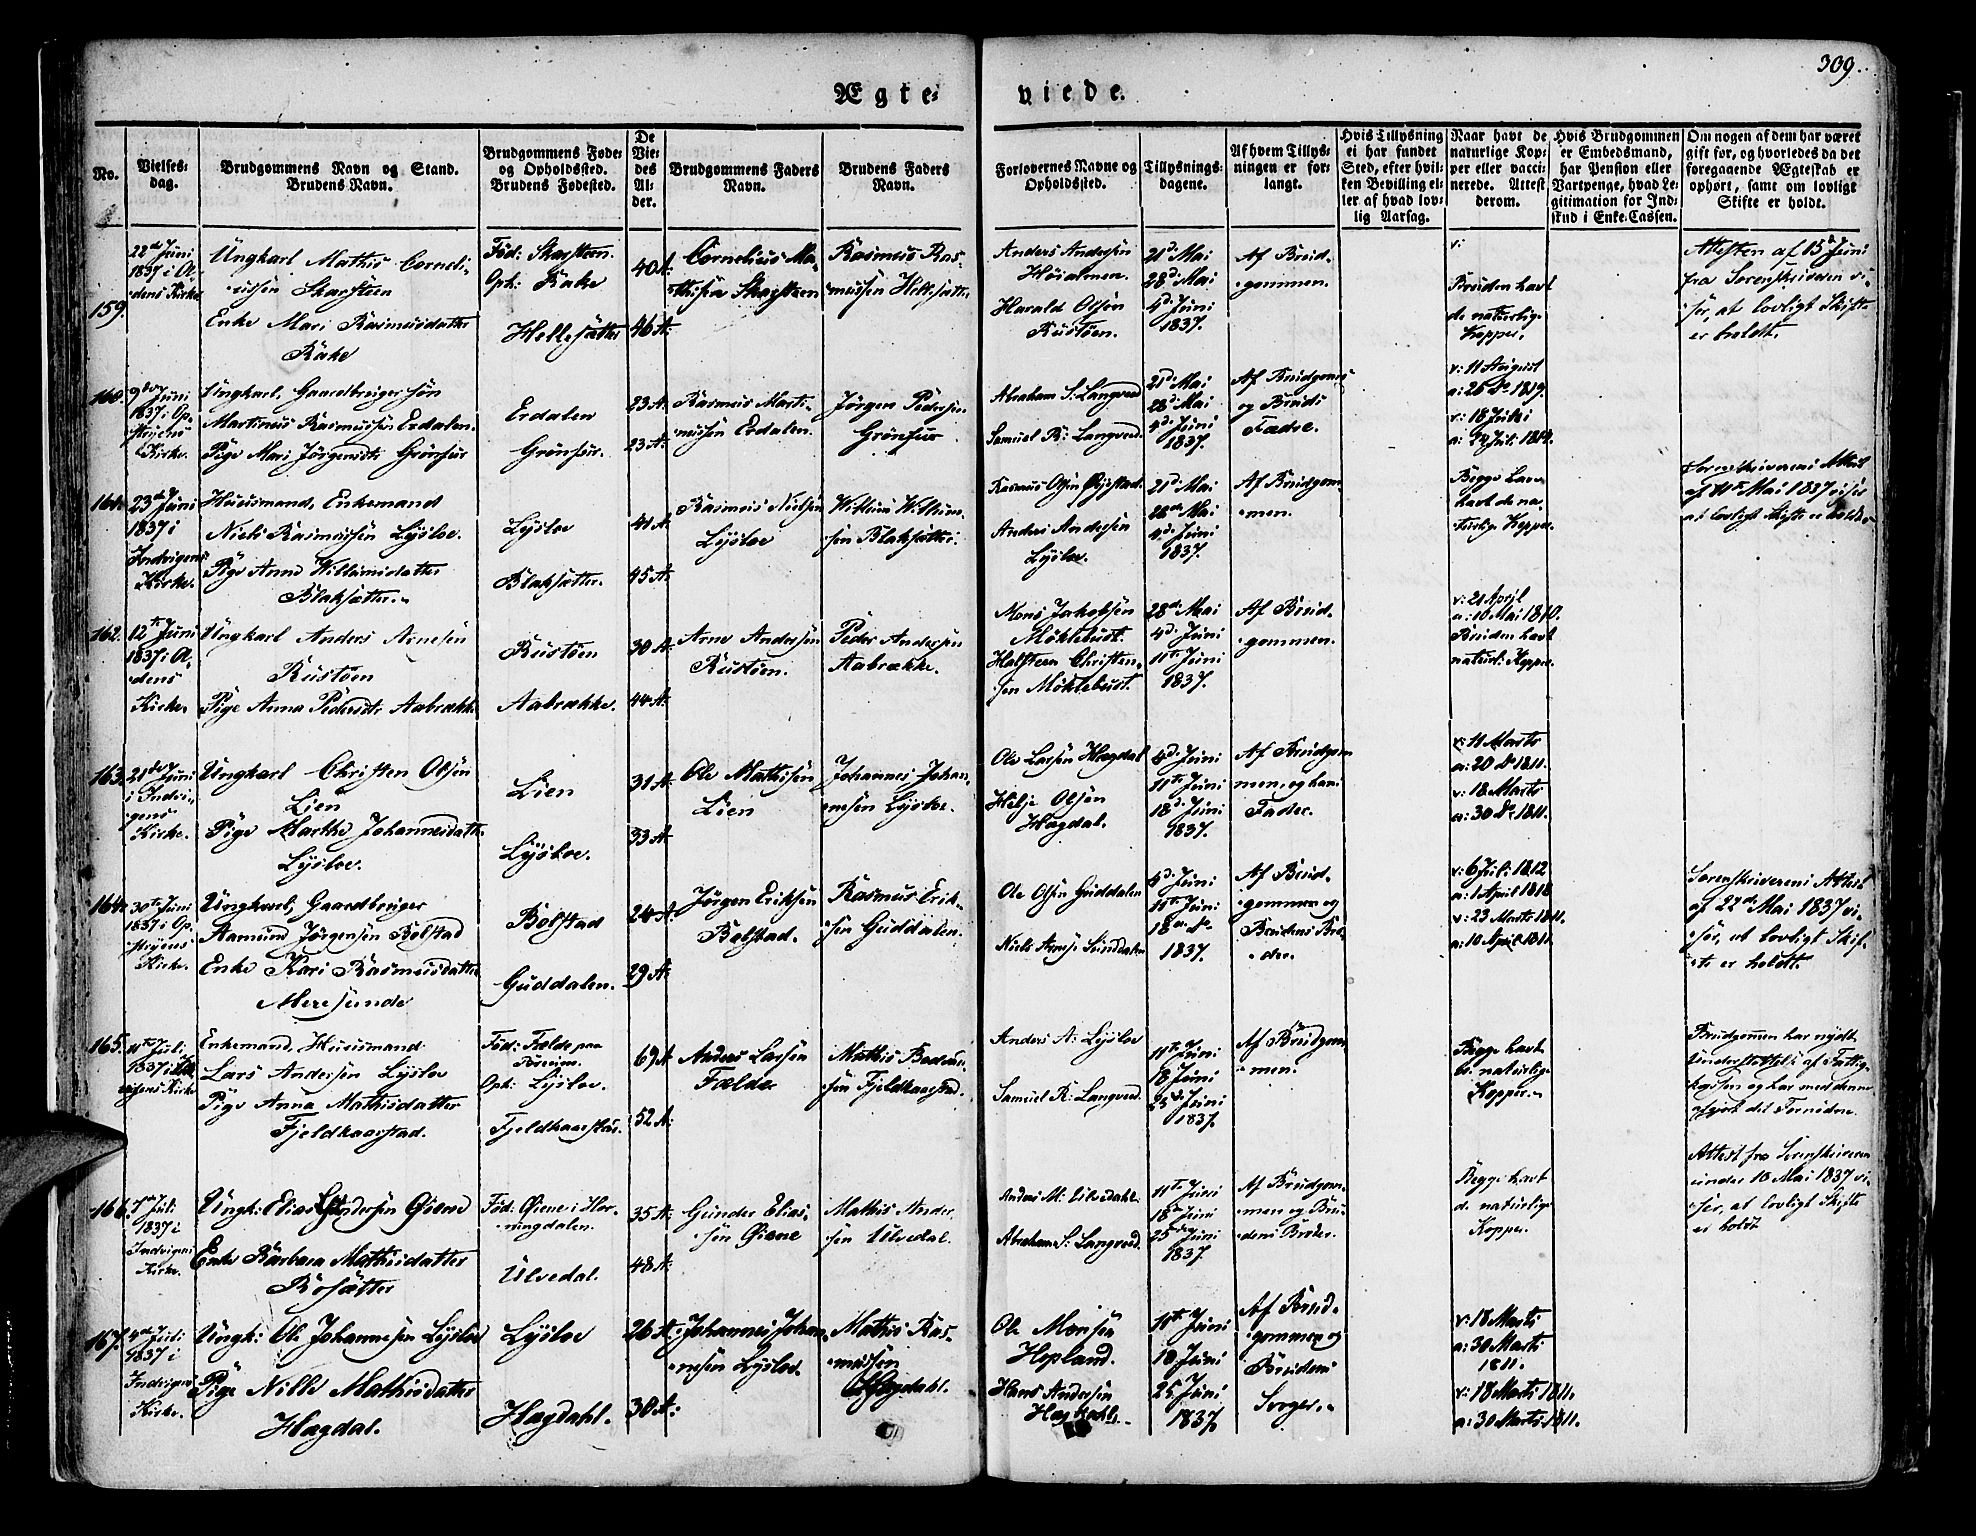 309.
Ægte-
viede.
No.
Vielses-
dag.
Brudgommens Navn og Stand.
Brudens Navn.
Brudgommens Føde-
og Opholdssted.
Brudens Fødested.
De
Vie-
des
Al-
der.
Brudgommens Faders
Navn.
Brudens Faders
Navn.
Forlovernes Navne og
Opholdssted.
Tillysnings-
dagene.
Af hvem Tillys-
ningen er for-
langt.
Hvis Tillysning
ei har fundet
Sted, efter hvil-
ken Bevilling el-
ler af hvad lov-
lig Aarsag.
Naar havt de
naturlige Kop-
per eller vacci-
nerede. Attest
derom.
Hvis Brudgommen
er Embedsmand,
har Pension eller
Vartpenge, hvad Le-
gitimation for Ind-
skud i Enke-Cassen.
Om nogen af dem har været
gift før, og hvorledes da det
foregaaende Ægteskab er
ophørt, samt om lovligt
Skifte er holdt.
159.
22de Juni
1837 i O-
dens Kirke
Ungkarl Mathis Corneli-
ussen Skarsteen
Enke Mari Rasmusdatter
Rake
Fød: Skarsteen
Oph: Rake
Hellesætter
40 A:
46 A:
Cornelius Ma-
thisen Skarsteen
Rasmus Ras-
mussen Hellesætter
Anders Andersen
Høialmen.
Harald Olsen
Rustøen.
21d Mai
28d Mai
4d Juni
1837.
Af Brud-
gommen.
v:
Bruden havt
de naturlige
Kopper.
Attesten af 15d Juni
fra Sorenskriveren vi-
ser, at lovligt Skift-
er holdt.
160.
9de Juni
1837 i Op-
stryens
Kirke.
Ungkarl, Gaardbrugersøn
Martinus Rasmussen Erdalen.
Pige Mari Jørgensdtr Grønfur
Erdalen
Grønfur.
23 A:
23 A:
Rasmus Marti-
nussen Erdalen.
Jørgen Pedersen
Grønfur
Abraham S: Langved
Samuel R: Langved.
21d Mai
28d Mai
4d Juni
1837.
Af Brudgomens
og Bruds
Fædre.
v: 11 August
a: 26 Do 1819.
v: 18 Juli
a: 24 Juli 1814.
161.
23de Juni
1837 i
Indvigens
Kirke.
Huusmand, Enkemand
Niels Rasmussen Lysloe.
Pige Anne Willumsdatter
Blaksætter.
Lysloe
Blaksætter.
41 A:
45 A:
Rasmus Nielsen
Lysloe
Willum Willum-
sen Blaksætter.
Rasmus Olsen
Anders Andersen
Lysloe.
21d Mai
28de Mai
4d Juni
1837.
Af Brudgom-
men.
Begge have
havt de na-
turlige Kopper.
Sorenskriverens Attest
af 11te Mai 1837 viser
at lovligt Skifte er holdt
162.
12te Juni
1837 i O-
dens
Kirke
Ungkarl Anders Arnesen
Rustøen
Pige Anna Pedersdtr Aabrække
Rustøen
Aabrække.
30 A:
44 A:
Arne Andersen
Rustøen.
Peder Andersen
Aabrække.
Mons Jakobsen
Møklebust.
Halsteen Christen-
sen Møklebust.
28de Mai
4d Juni
11te Juni
1837.
Af Brud-
gommen.
v: 21 April
a: 10 Mai 1810.
Bruden havt
naturl: Kopper.
163.
21de Juni
i Indvi-
gens
Kirke.
Ungkarl Christen Olsen
Lien
Pige Marthe Johannesdatter
Lysloe.
Lien
Lysloe.
31 A:
33 A:
Ole Mathisen
Lien
Johannes Johan-
nesen Lysloe.
Ole Larsen Hagdal
Helje Olsen
Hagdal.
4d Juni
11te Juni
18d Juni
1837.
Af Brudgom
men, og hans
Fader.
v: 11 Marts
a: 20 Do 1811.
v: 18 Marts
a: 30 Do 1811.
164.
30te Juni
1837 i Op-
stryens
Kirke.
Ungkarl, Gaardbruger
Aamund Jørgensen Bolstad
Enke Kari Rasmusdatter
Meresunde
Bolstad
Guddalen.
24 A:
29 A:
Jørgen Eriksen
Bolstad.
Rasmus Erik-
sen Guddalen.
Ole Olsen Guddalen
4d Juni
11te Juni
18de Do
1837.
Af Brud-
gommen og
Brudens Bro-
der.
v: 6 Juli 1812
a: 1 April 1818
v: 23 Marts 1811.
a: 10 April 1811.
Sorenskriverens Attest
af 22de Mai 1837 vi-
ser, at lovligt Skif-
te er holdt.
165.
11te Juli
1837 i Ind-
vigens Kirke
Enkemand, Huusmand
Lars Andersen Lysloe
Pige Anna Mathisdatter
Fjeldkaarstad.
Fød: Fælde paa
Oph: Lysloe.
Fjeldkaarstad.
69 A
52 A:
Anders Larsen
Fælde
Mathis
sen Fjeldkaarstad.
Anders A: Lysloe
Samuel R: Langved.
11te Juni
18 Juni
25d Juni
1837.
Af Brudgom
men.
Begge havt
de naturlige
Kopper.
Brudgommen har nydt
Understøttelse af Fattig-
kassen og har med denne
afgjort det Fornødne.
166.
7de Juli
1837 i
Indvigens
Kirke.
Ungk: Elias Gundersen Øiene
Enke Barbara Mathisdatter
Rosætter
Fød: Øiene i Hor-
ningdalen.
Ulvedal.
35 A:
48 A:
Gunder Elias-
sen Øiene
Mathis Ander-
sen Ulvedal.
Anders M: Ulvedahl.
Abraham S: Langved.
11te Juni
18de Juni
25de Juni
1837.
Af Brudgom-
men og Bru-
dens Broder.
Begge havt
de naturlige
Kopper.
Attest fra Sorenskriveren
under 10 Mai 1837 vi-
ser, at lovligt Skifte
er holdt
167.
4de Juli
1837 i
Indvigens
Kirke.
Ungk: Ole Johannesen Lysloe
Pige Nille Mathisdatter
Hagdal.
Lysloe
Hagdahl.
26 A:
30 A:
Johannes Johan-
nesen Lysloe.
Mathis Ras-
mussen
Hagdahl.
Ole Monsen
Hopland.
Hans Andersen
Hagdahl.
11te Juni
18 Juni
25 Juni
1837.
Af Brud-
gommen og
Brudens
Sorger.
v: 18 Marts
a: 30 Marts
1811.
v: 18 Marts 1811.
a: 30 Marts 1811.